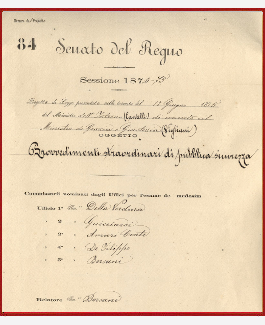 84
Senato del Regno
Sessione 1874-75
Progetto di Legge presentato nella tornata del 17 Giugno 1875
dal Ministro dell'Interno (Cantelli) di concerto col
Ministro di Grazia e Giustizia (Vigliani)
OGGETTO
Provvedimenti straordinari di pubblica sicurezza
Commissarii nominati dagli Uffizi per l'esame de' medesimi
Ufficio 1°
" 2° " Guicciardi
" 3° " Amari Conte
" 4° " De Filippo
" 5° " Borsani
Relatore Borsani